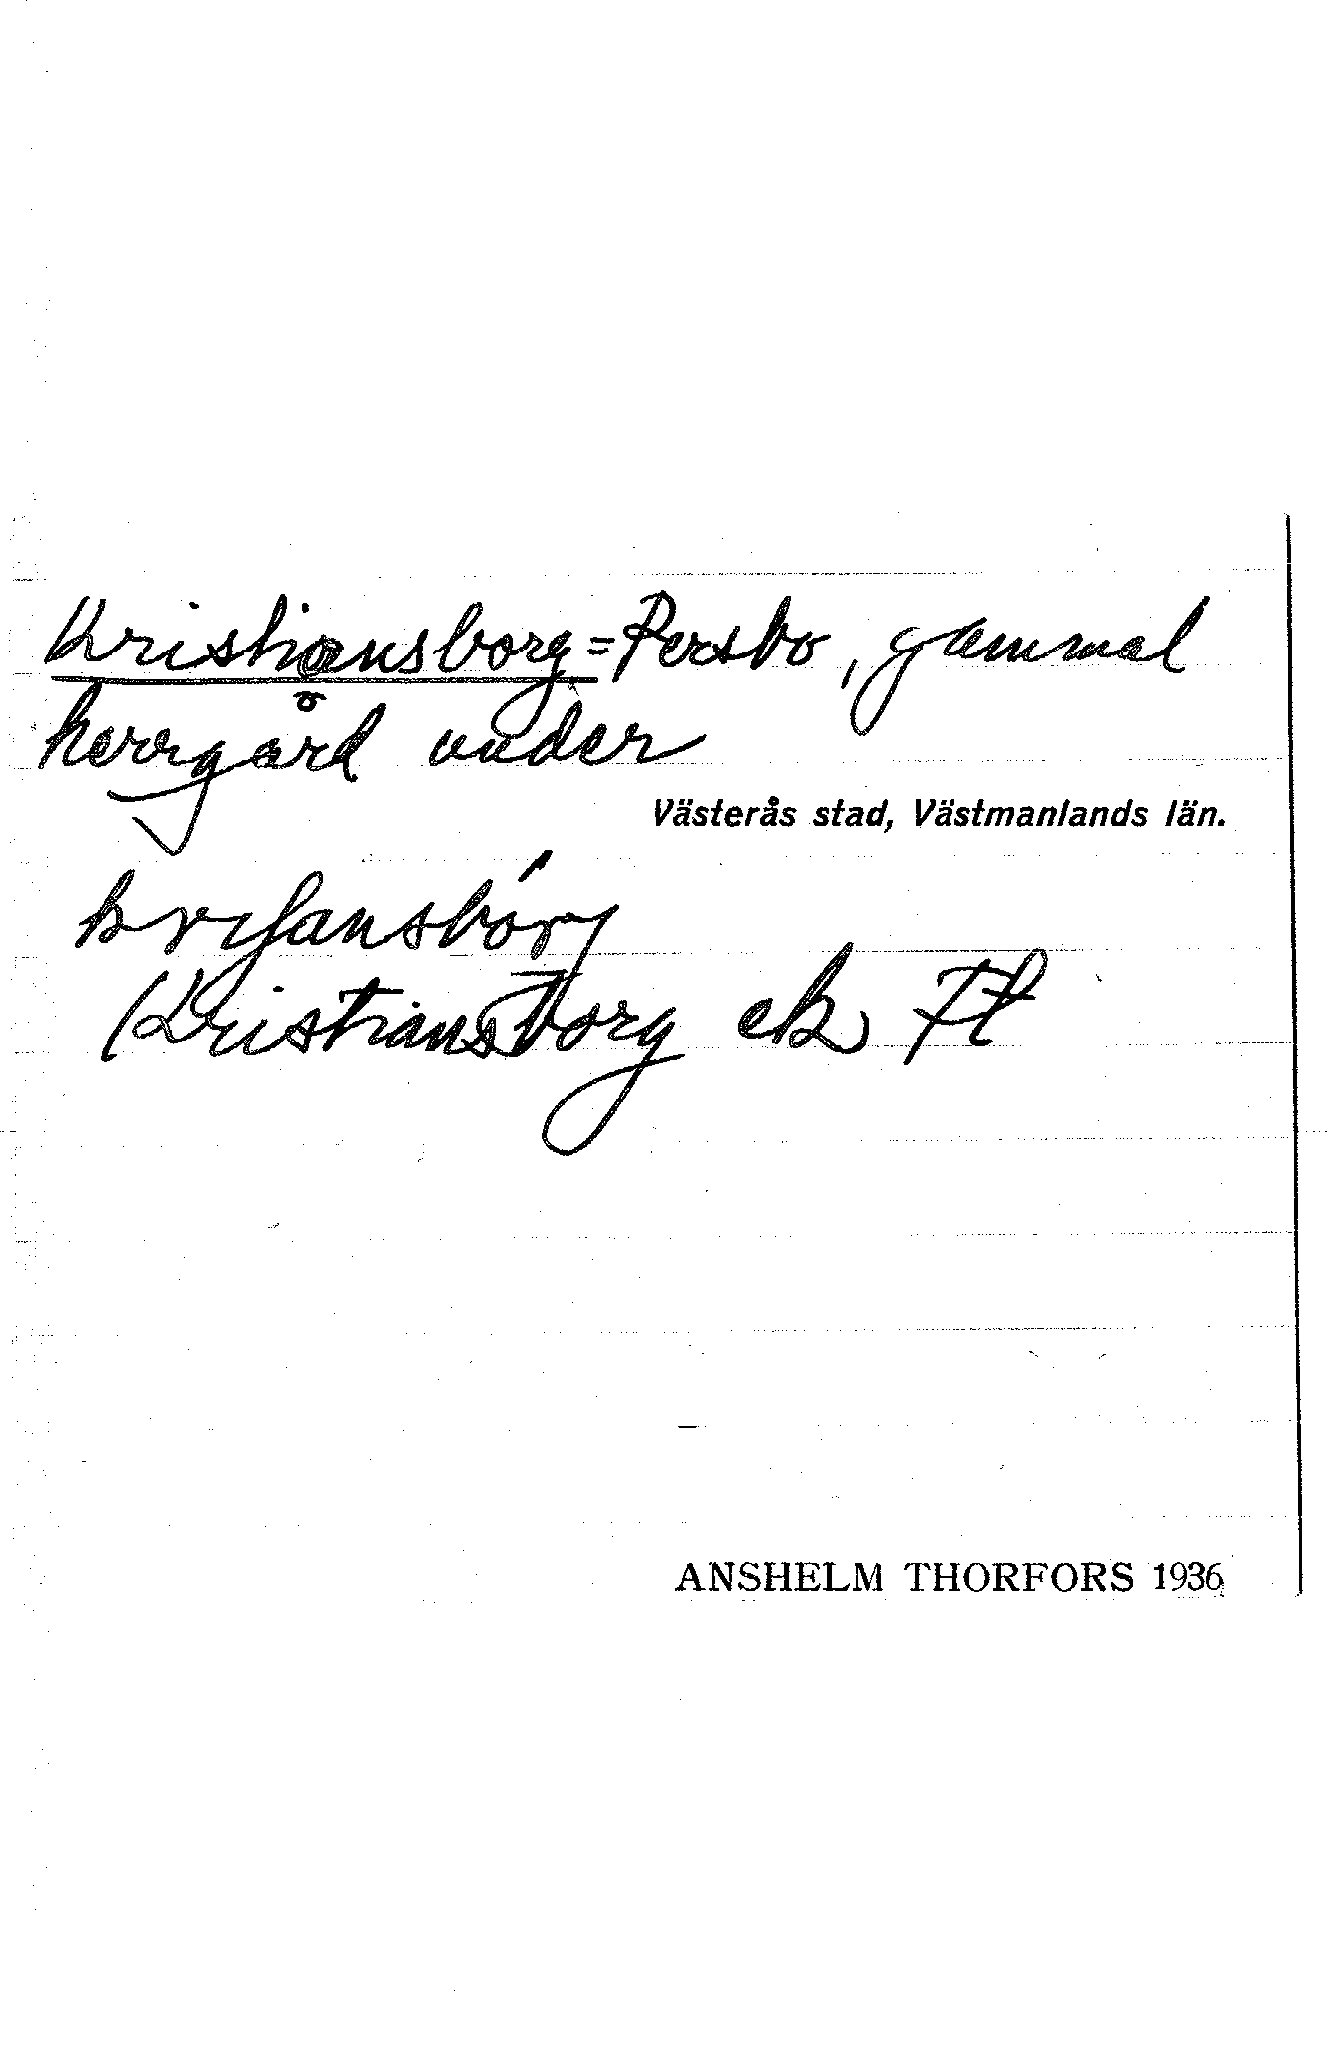 Kristiansborg = Persbo, gammal
herrgård under
Västerås stad, Västmanlands län.
Kristiansborg ek
ANSHELM THORFORS 1936